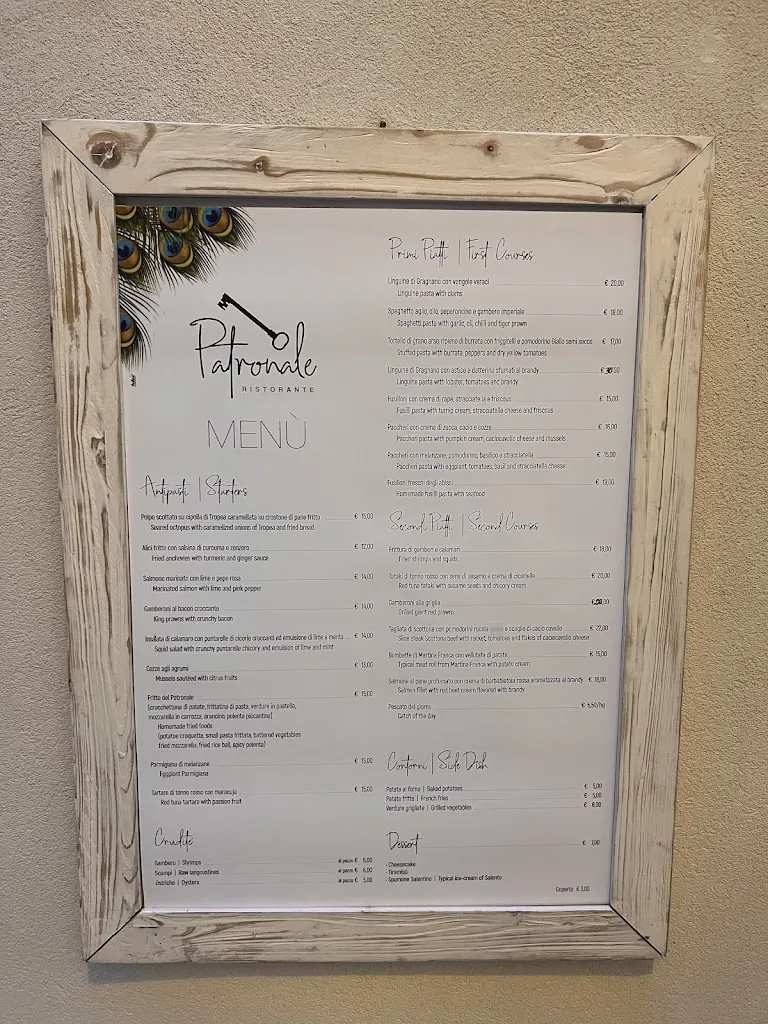 Patronale
RISTORANTE
MENÙ
Antipasti | Starters
Polpo scottato su cipolla di Tropea caramellata su crostone di pane fritto € 15,00
Seared octopus with caramelized onions of Tropea and fried bread
Alici fritte con salsina di curcuma e zenzero € 12,00
Fried anchovies with turmeric and ginger sauce
Salmone marinato con lime e pepe rosa € 14,00
Marinated salmon with lime and pink pepper
Gamberoni al bacon croccante € 14,00
King prawns with crunchy bacon
Insalata di calamaro con puntarelle di cicorie croccanti ed emulsione di lime e menta € 14,00
Squid salad with crunchy puntarelle chicory and emulsion of lime and mint
Cozze agli agrumi € 13,00
Mussels sautéed with citrus fruits
Fritto del Patronale € 15,00
(crocchettone di patate, frittatina di pasta, verdure in pastella,
mozzarella in carrozza, arancino, polenta piccantina)
Homemade fried foods
(potatoe croquette, small pasta frittata, battered vegetables
fried mozzarella, fried rice ball, spicy polenta)
Parmigiana di melanzane € 15,00
Eggplant Parmigiana
Tartare di tonno rosso con maracuja € 15,00
Red tuna tartare with passion fruit
Crudité
Gambero | Shrimps al pezzo € 6,00
Scampi | Raw langoustines al pezzo € 6,00
Ostriche | Oysters al pezzo € 5,00
Primi Piatti | First Courses
Linguine di Gragnano con vongole veraci € 20,00
Linguine pasta with clams
Spaghetto aglio, olio, peperoncino e gambero imperiale € 18,00
Spaghetti pasta with garlic, oil, chilli and tiger prawn
Tortello di grano arso ripieno di burrata con friggitelli e pomodorino Giallo semi secco € 17,00
Stuffed pasta with burrata, peppers and dry yellow tomatoes
Linguina di Gragnano con astice e datterino sfumati al brandy €
Linguine pasta with lobster, tomatoes and brandy
Fusilloni con crema di rape, stracciatella e friscous € 15,00
Fusilli pasta with turnip cream, stracciatella cheese and friscous
Paccheri con crema di zucca, cacio e cozze € 16,00
Paccheri pasta with pumpkin cream, caciocavallo cheese and mussels
Paccheri con melanzane, pomodorino, basilico e stracciatella € 15,00
Paccheri pasta with eggplant, tomatoes, basil and stracciatella cheese
Fusilloni freschi degli abissi € 19,00
Homemade fusilli pasta with seafood
Secondi Piatti | Second Courses
Frittura di gamberi e calamari € 18,00
Fried shrimps and squids
Tataki di tonno rosso con semi di sesamo e crema di cicorielle € 20,00
Red tuna tataki with sesame seeds and chicory cream
Gamberoni alla griglia €
Grilled giant red prawns
Tagliata di scottona con pomodorini rucola e scaglie di cacio cavallo € 22,00
Slice steak Scottona beef with rocket, tomatoes and flakes of caciocavallo cheese
Bombette di Martina Franca con vellutata di patate € 15,00
Typical meat roll from Martina Franca with potato cream
Salmone al pane profumato con crema di barbabietola rossa aromatizzata al brandy € 18,00
Salmon fillet with red beet cream flavored with brandy
Pescato del giorno € 6,50/hg
Catch of the day
Contorni | Side Dish
Patate al forno | Baked potatoes € 5,00
Patate fritte | French fries € 5,00
Verdure grigliate | Grilled vegetables € 6,00
Dessert € 7,00
- Cheesecake
- Tiramisù
- Spumone Salentino | Typical ice-cream of Salento
Coperto € 3,00